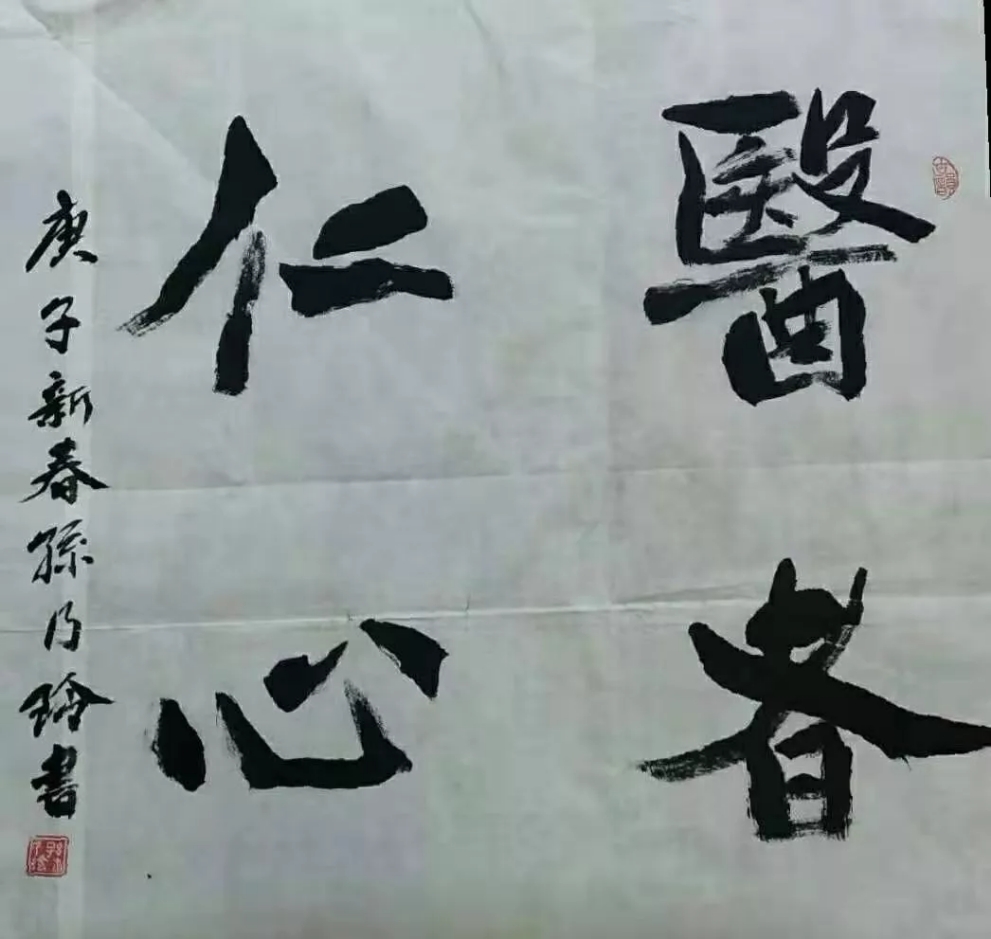 醫者
仁心
庚子新春孫乃玲書